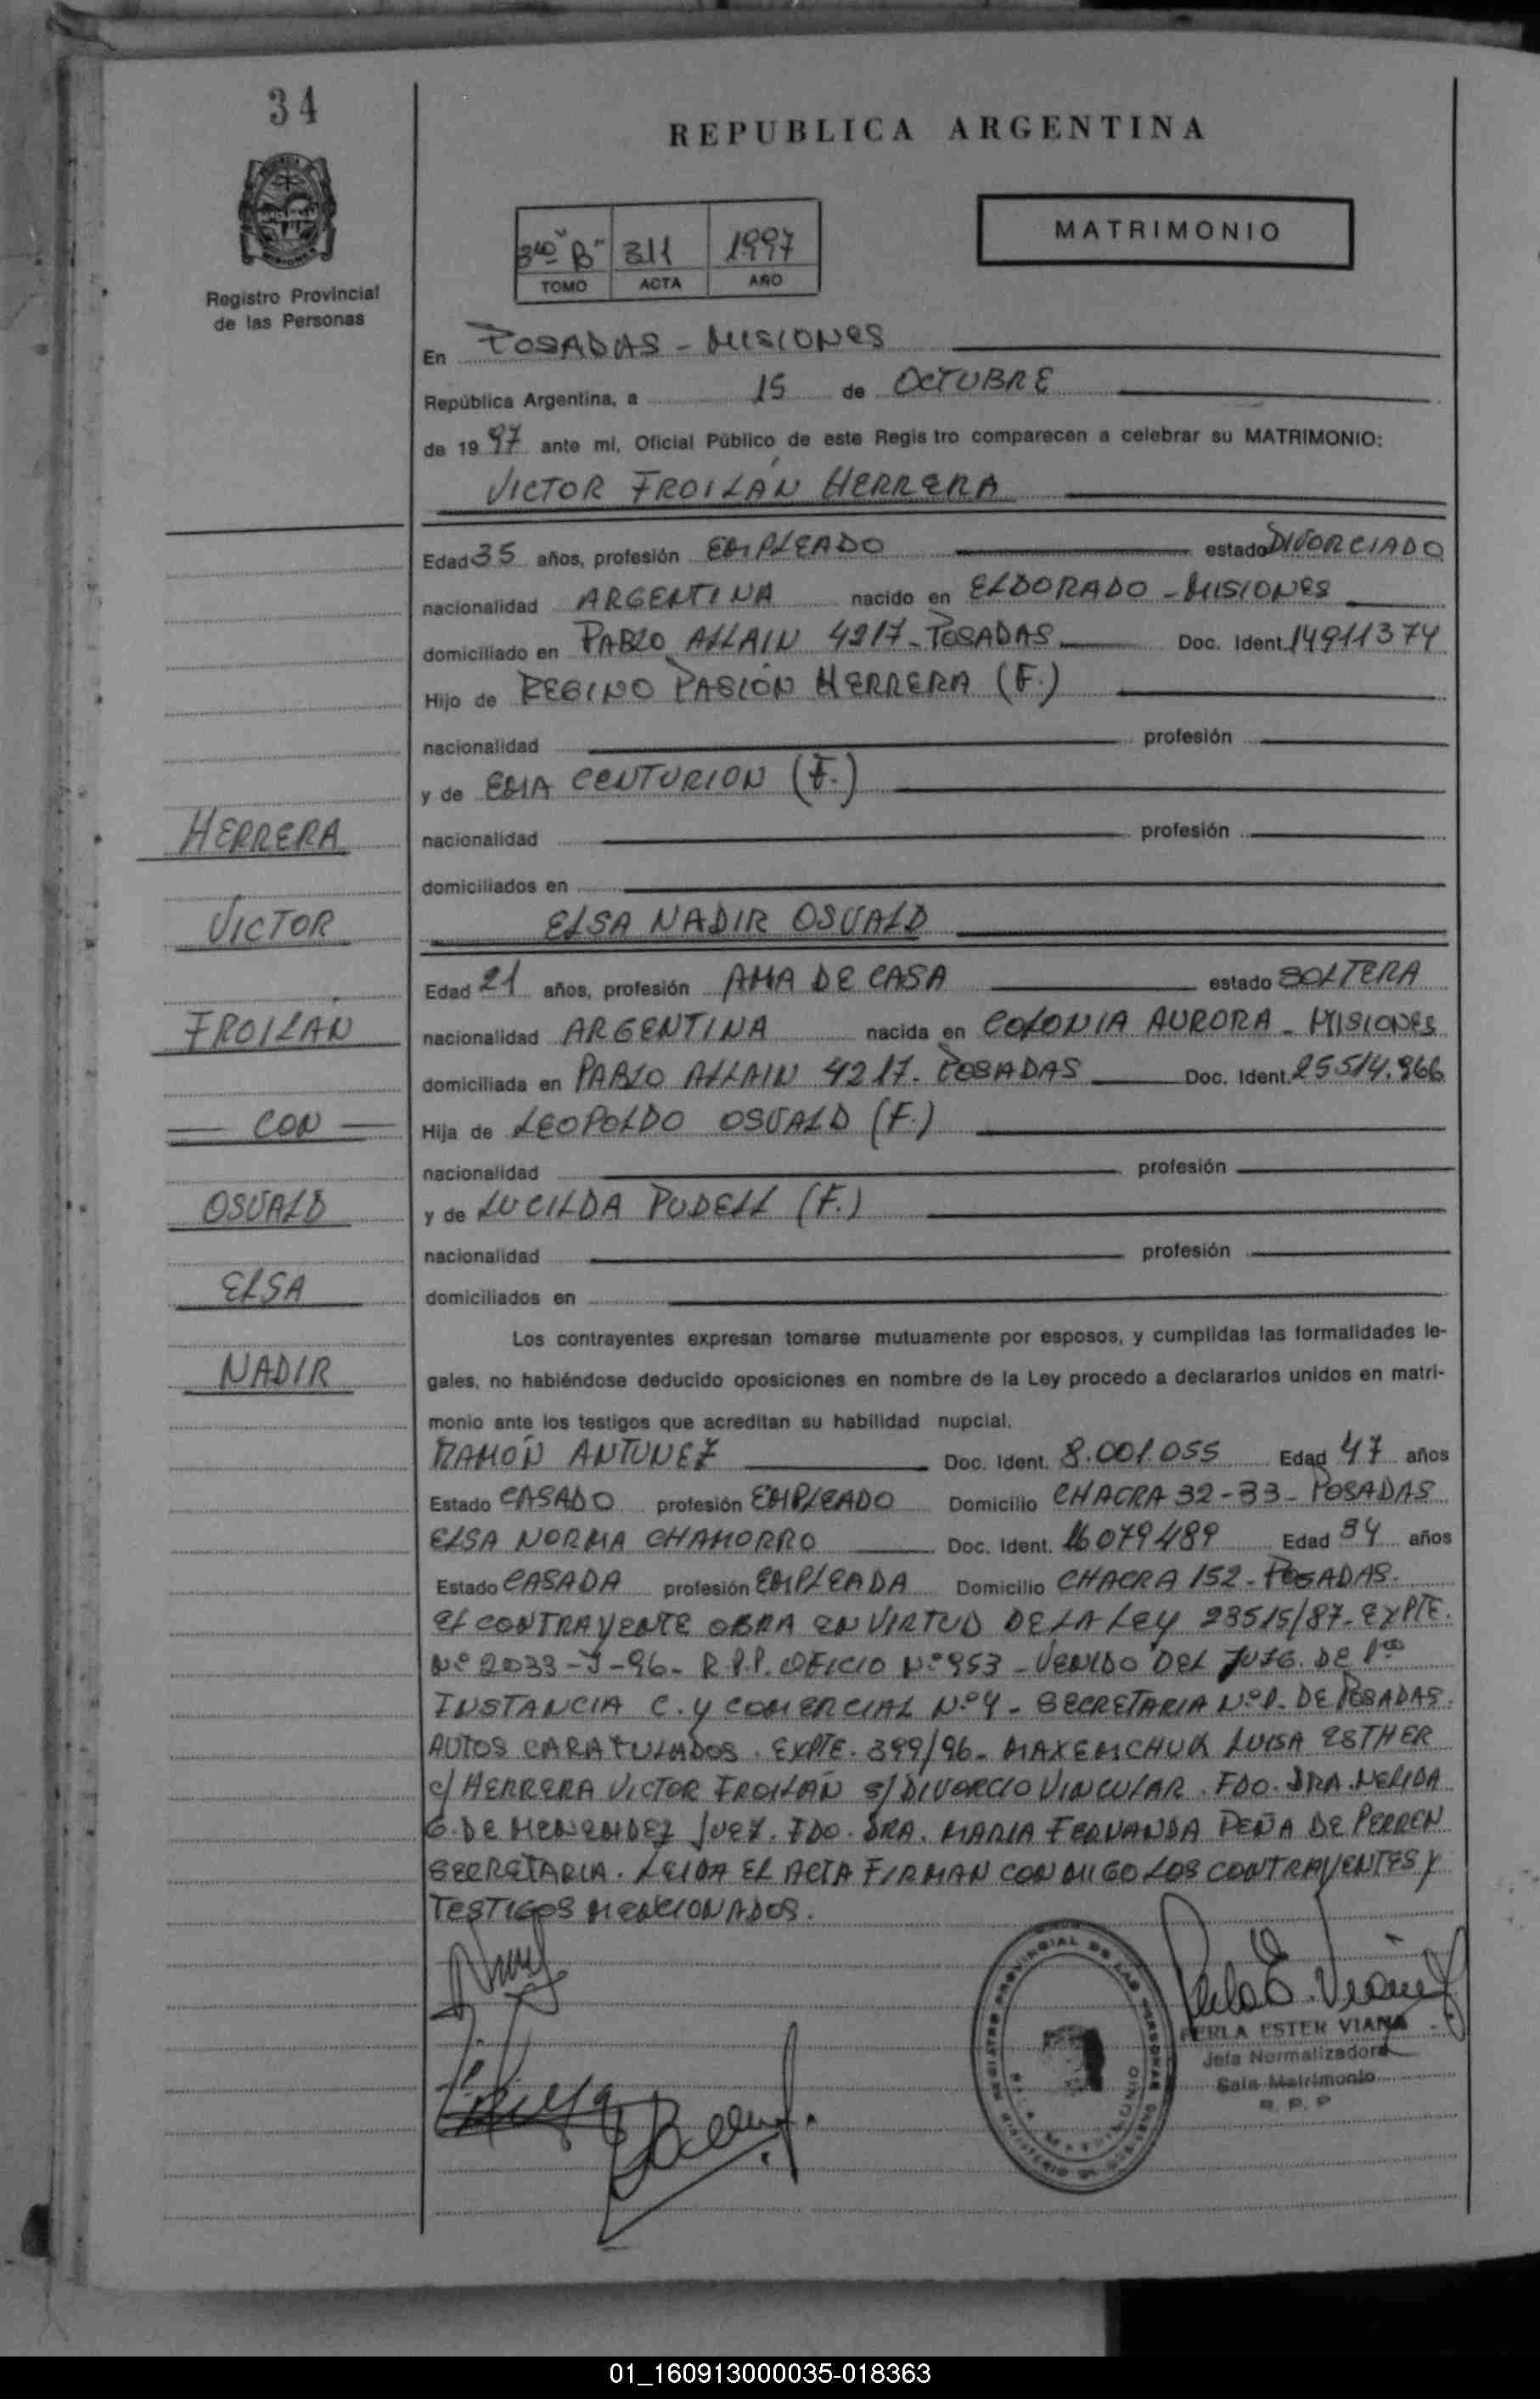 34
REPUBLICA ARGENTINA
Registro Provincial
de las Personas
3ro "B" 311 1997
TOMO ACTA AÑO
MATRIMONIO
En POSADAS - MISIONES
República Argentina, a 15 de OCTUBRE
de 1997 ante mi, Oficial Público de este Regis tro comparecen a celebrar su MATRIMONIO:
VICTOR FROILÁN HERRERA
Edad 35 años, profesión EMPLEADO estado DIVORCIADO
nacionalidad ARGENTINA nacido en ELDORADO - MISIONES
domiciliado en PABLO ALLAIN 4217 - POSADAS Doc. Ident. 14911374
Hijo de REGINO PASIÓN HERRERA (F.)
nacionalidad profesión
y de EMA CENTURION (F.)
nacionalidad profesión
domiciliados en
ELSA NADIR OSVALD
Edad 21 años, profesión AMA DE CASA estado SOLTERA
nacionalidad ARGENTINA nacida en COLONIA AURORA - MISIONES
domiciliada en PABLO ALLAIN 4217. POSADAS Doc. Ident. 25514.966
Hija de LEOPOLDO OSVALD (F.)
nacionalidad profesión
y de LUCILDA PUDELL (F.)
nacionalidad profesión
domiciliados en
HERRERA
VICTOR
FROILÁN
CON
OSVALD
ELSA
NADIR
Los contrayentes expresan tomarse mutuamente por esposos, y cumplidas las formalidades le-
gales, no habiéndose deducido oposiciones en nombre de la Ley procedo a declararlos unidos en matri-
monio ante los testigos que acreditan su habilidad nupcial.
RAMÓN ANTUNEZ Doc. Ident. 8.001.055 Edad 47 años
Estado CASADO profesión EMPLEADO Domicilio CHACRA 32-33 - POSADAS
ELSA NORMA CHAMORRO Doc. Ident. 16079489 Edad 34 años
Estado CASADA profesión EMPLEADA Domicilio CHACRA 152 - POSADAS.
El CONTRAYENTE OBRA EN VIRTUD DE LA LEY 23515/87 - EXPTE.
Nº 2033-J-96 - R.P.P. OFICIO Nº 953 - VENIDO DEL JUZG. DE 1ra
INSTANCIA C. Y COMERCIAL Nº 4 - SECRETARIA Nº 1. DE POSADAS.
AUTOS CARATULADOS. EXPTE. 399/96 - MAXEMCHUK LUISA ESTHER
c/ HERRERA VICTOR FROILÁN s/ DIVORCIO VINCULAR. FDO. DRA. NELIDA
G. DE MENENDEZ JUEZ. FDO. DRA. MARIA FERNANDA PEÑA DE PERREN
SECRETARIA. LEIDA EL ACTA FIRMAN CONMIGO LOS CONTRAYENTES Y
TESTIGOS MENCIONADOS.
REGISTRO PROVINCIAL DE LAS PERSONAS
SALA MATRIMONIO
PERLA ESTER VIANA
Jefa Normalizadora
Sala Matrimonio
R. P. P
01_160913000035-018363